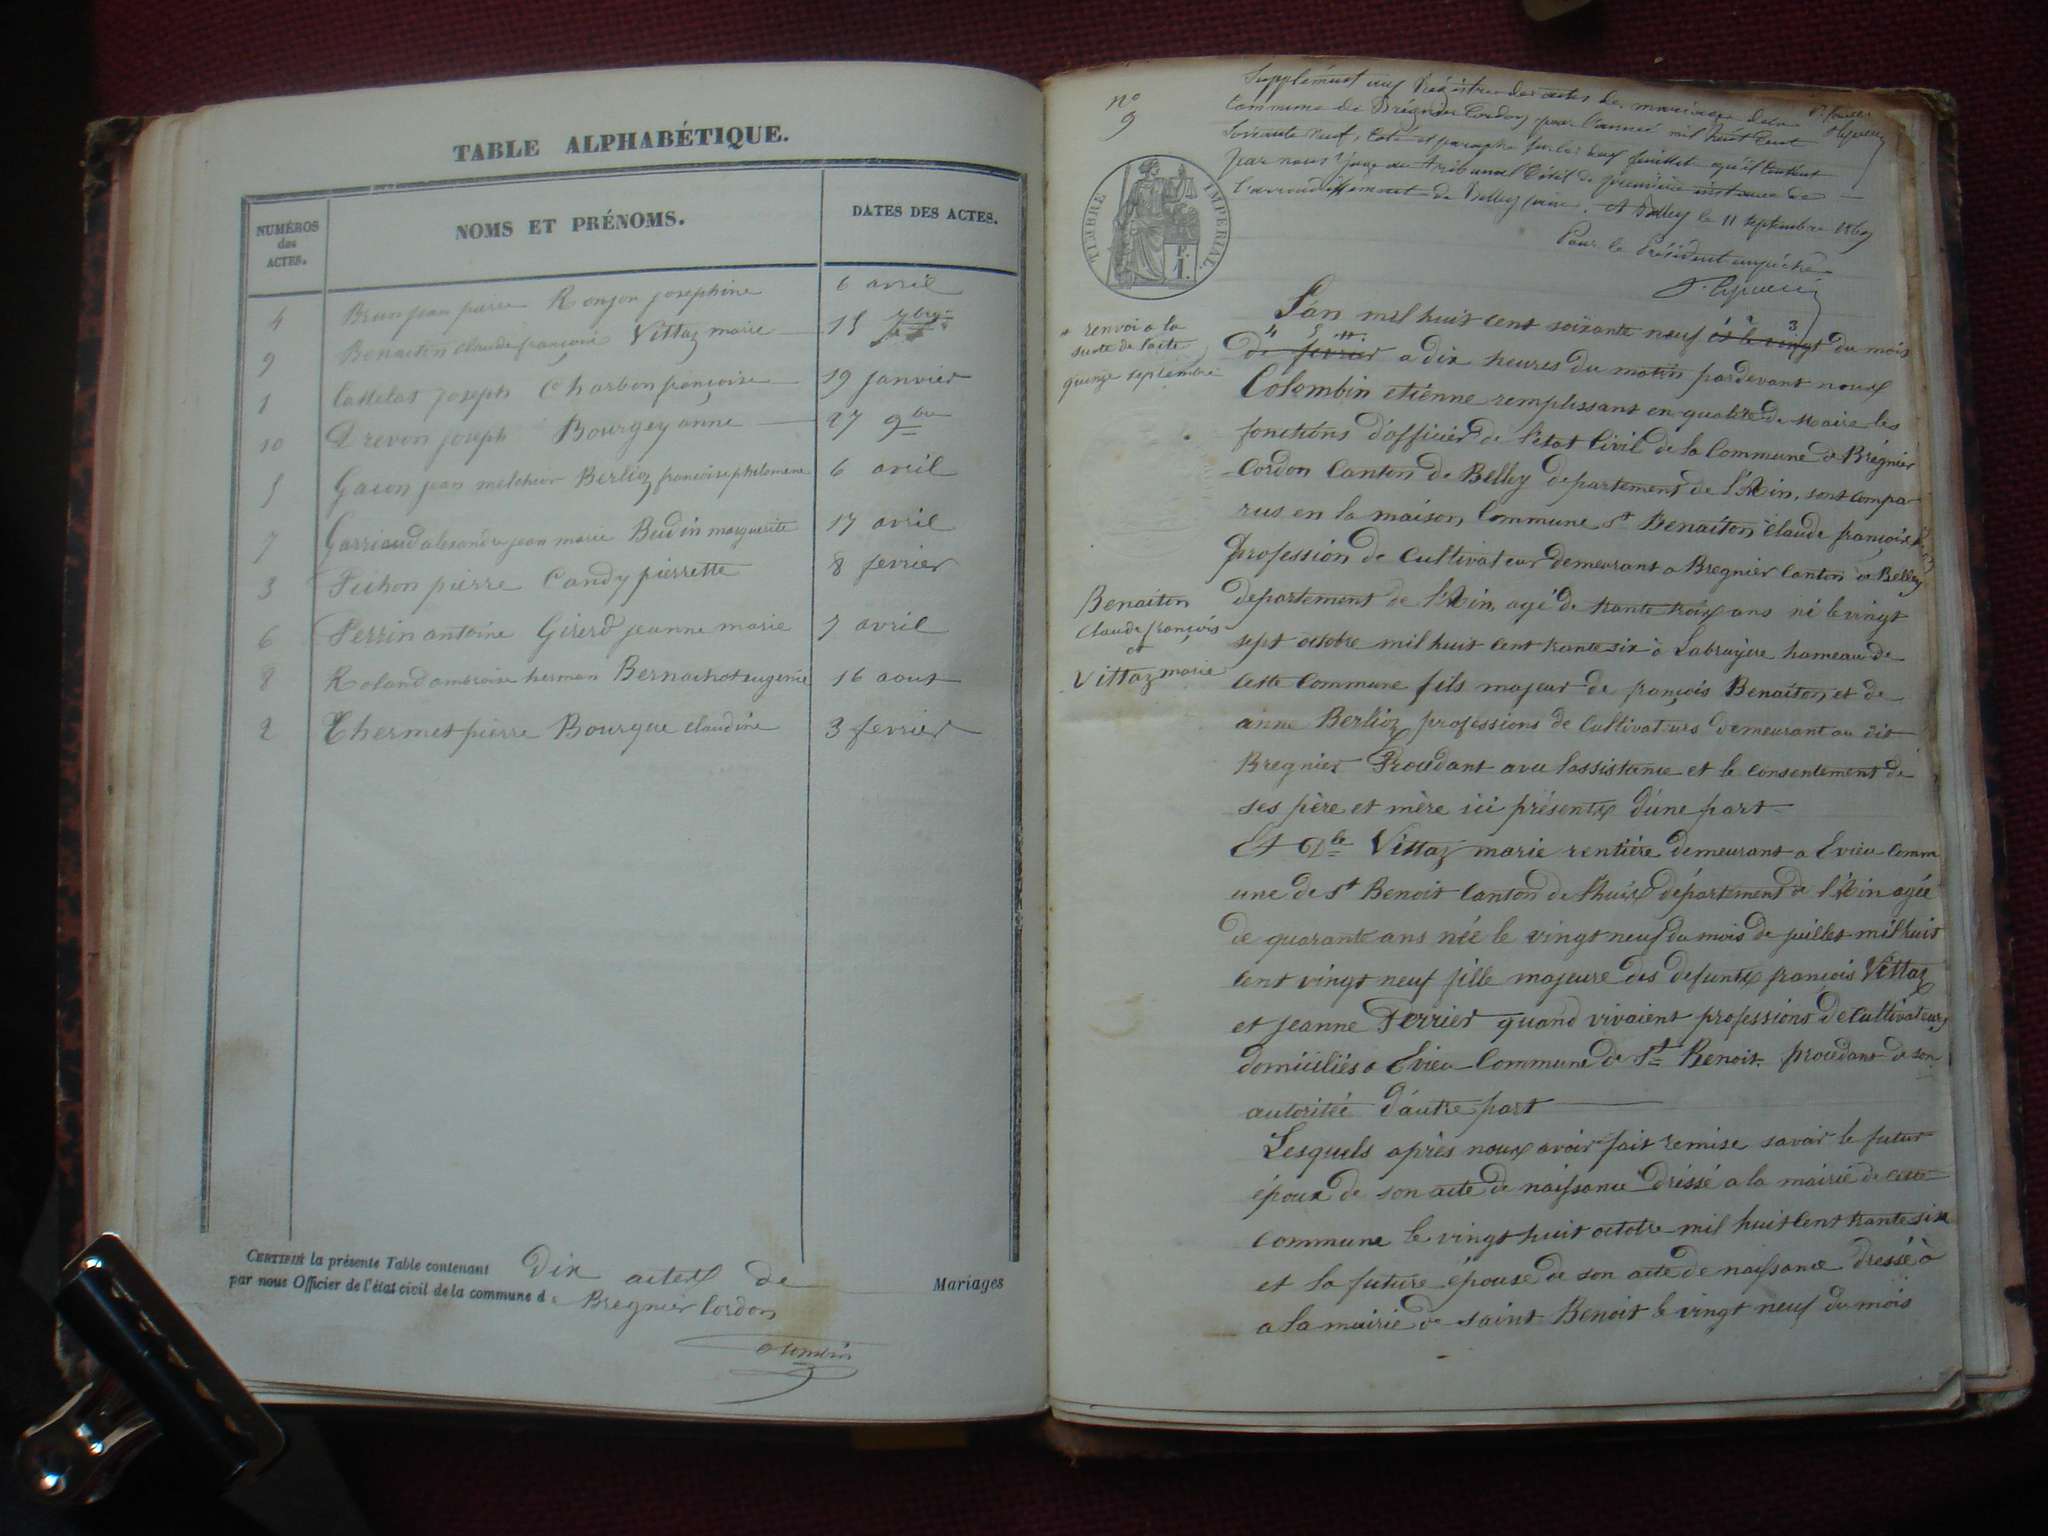 TABLE ALPHABÉTIQUE.
NUMÉROS des ACTES. NOMS ET PRÉNOMS. DATES DES ACTES.
4 Brun jean pierre Ronjon josephine 6 avril
9 Benaiton claude françois Vittaz marie 15 7bre
1 Castelat joseph Charbon françoise 19 janvier
10 Drevon joseph Bourgey anne 27 9bre
5 Gacon jean melchior Berlioz françoise philomene 6 avril
7 Garriaud alexandre jean marie Budin marguerite 17 avril
3 Pichon pierre Candy pierrette 8 fevrier
6 Perrin antoine Girerd jeanne marie 7 avril
8 Roland ambroise herman Bernachot eugénie 16 aout
2 Thermet pierre Bourgue claudine 3 fevrier
CERTIFIÉ la présente Table contenant dix actes de Mariages
par nous Officier de l'état civil de la commune d Bregnier Cordon
Colombin
no
9
Supplément aux Régistres des actes de mariage de la
Commune de Brégnier Cordon pour l'année mil huit Cent
soixante neuf, Coté et paraphé sur les feuillets qu'il contient
par nous juge au tribunal Civil de première instance de
l'arrondissement de Belley (ain). A Belley le 11 septembre 1869
Pour le Président empêché
TIMBRE IMPERIAL.
L'an mil huit cent soixante neuf et le vingt du mois
de fevrier a dix heures du matin pardevant nous
* renvoi a la
suite de l'acte
quinze septembre
Colombin etienne remplissant en qualité de Maire les
fonctions d'officier de l'état Civil de la Commune de Brégnier
Cordon Canton de Belley departement de l'Ain, sont compa-
rus en la maison Commune st Benaiton Claude françois
profession de Cultivateur demeurant a Bregnier Canton de Belley
Benaiton
Claude françois
et
Vittaz marie
departement de l'Ain, agé de trante trois ans né le vingt
sept octobre mil huit cent trante six à Labruyère hameau de
cette Commune fils majeur de françois Benaiton et de
anne Berlioz professions de Cultivateurs demeurant au dit
Bregnier Procedant avec l'assistance et le consentement de
ses père et mère ici présents d'une part
Et Dlle Vittaz marie rentière demeurant a Evieu Comm
une de st Benoit Canton de Lhuis département de l'Ain agée
de quarante ans née le vingt neuf du mois de juillet mil huit
cent vingt neuf fille majeure des defunts françois Vittaz
et jeanne Perrier quand vivaient professions de cultivateurs
domiciliés a Evieu Commune de St Benoit. procedant de son
autoritée d'autre part
Lesquels après nous avoir fait remise savoir le futur
époux de son acte de naissance dréssé a la mairie de cette
commune le vingt huit octobre mil huit cent trante six
et la future épouse de son acte de naissance dressé à
a la mairie de saint Benoit le vingt neuf du mois